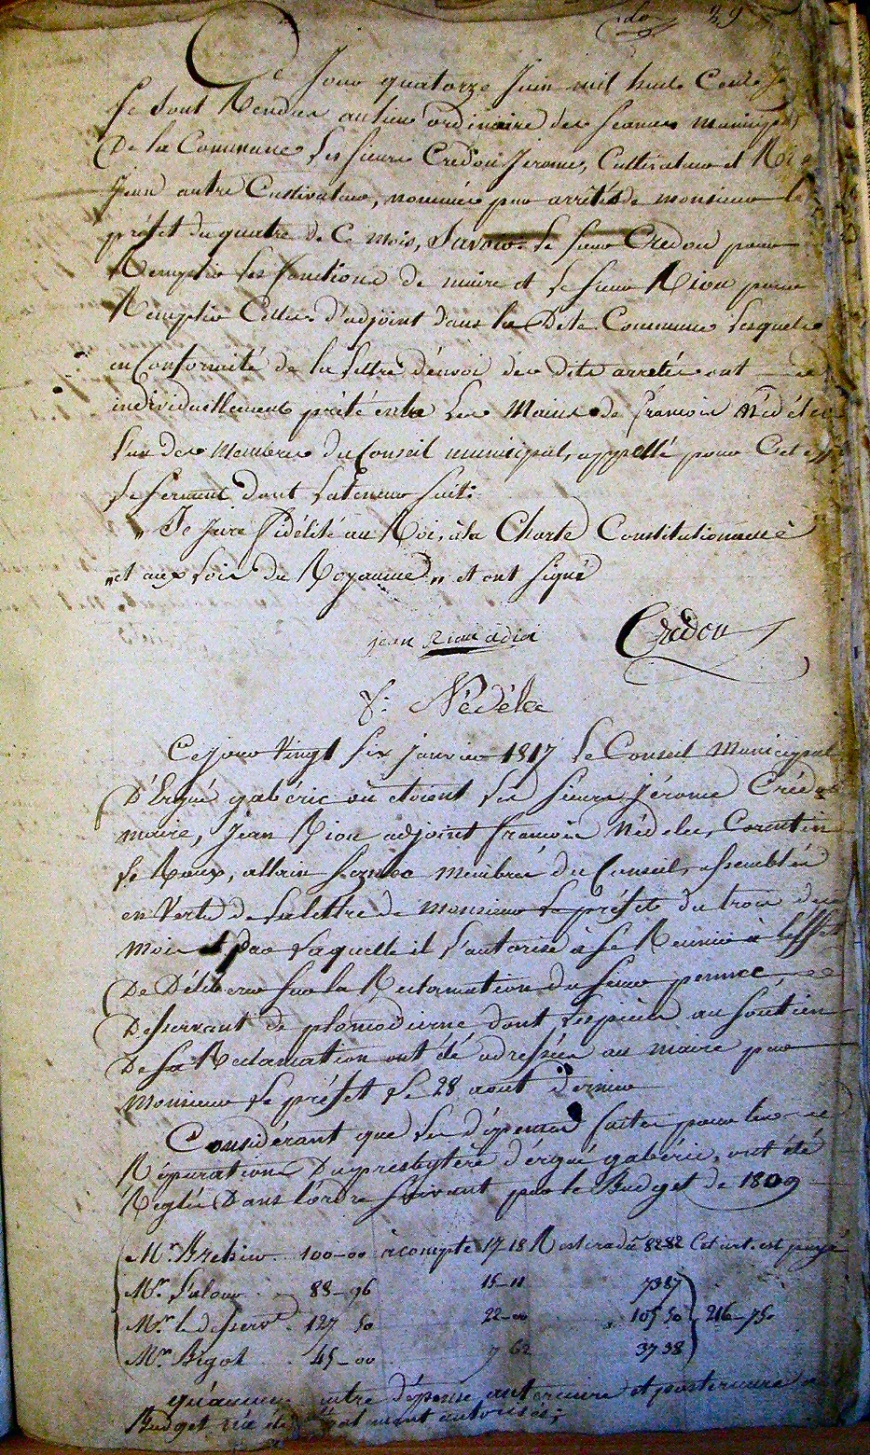 39
Ce Jour quatorze Juin mil huit Cent
se sont Rendus au lieu ordinaire des seances municip
De la Commune les sieurs Credou Jerome, Cultivateur et Rio
Jean autre Cultivateur, nommés par arrêtés de monsieur le
préfet du quatre de Ce mois, Savoir le sieur Credou pour
Remplir les fonctions de maire et le sieur Riou pour
Remplir Celles d'adjoint dans la Dite Commune lesquels
en Conformité de la lettre d'envoi des dits arretés ont
individuellement prêté entre les Mains de francois Nédélec
l'un des Membres du Conseil municipal, appellé pour Cet eff
le serment dont la teneur suit:
„ Je Jure fidélité au Roi, à la Charte Constitutionnelle
„ et aux loix du Royaume „ et ont signé
jean Riou adjoi Credou
f: Nédélec
Ce jour Vingt six janvier 1817 le Conseil Municipal
D'Ergué gabéric où etoient les sieurs Jérome Crédou
maire, Jean Riou adjoint francois Nédelec, Corentin
Le Roux, allain membres du Conseil, assemblés
en Vertu de la lettre de Monsieur le préfet du trois de ce
mois par laquelle il l'autorise à se Reunir à l'effet
De Délibérer sur la Reclamation du sieur pennec,
Desservant de plomodierne dont les pieces au soutien
De sa Reclamation ont été adressées au maire par
Monsieur le préfet le 28 aout dernier
Considérant que les dépenses faites pour les
Réparations Du presbytere d'ergué gabéric, ont été
Réglées Dans l'ordre suivant par le Budget de 1809
Mr. Brehier 100-00 à compte 17-18 Restera dû 82 82 Cet art. est payé
Mr. Salaun 88-96 15-11 73 87
Mr. le desservt. 127 50 22-00 105 50 216-75
Mr. Bigot 45-00 7 62 37 38
qu'aucune autre dépense anterieure et posterieure
Budget autorisée;